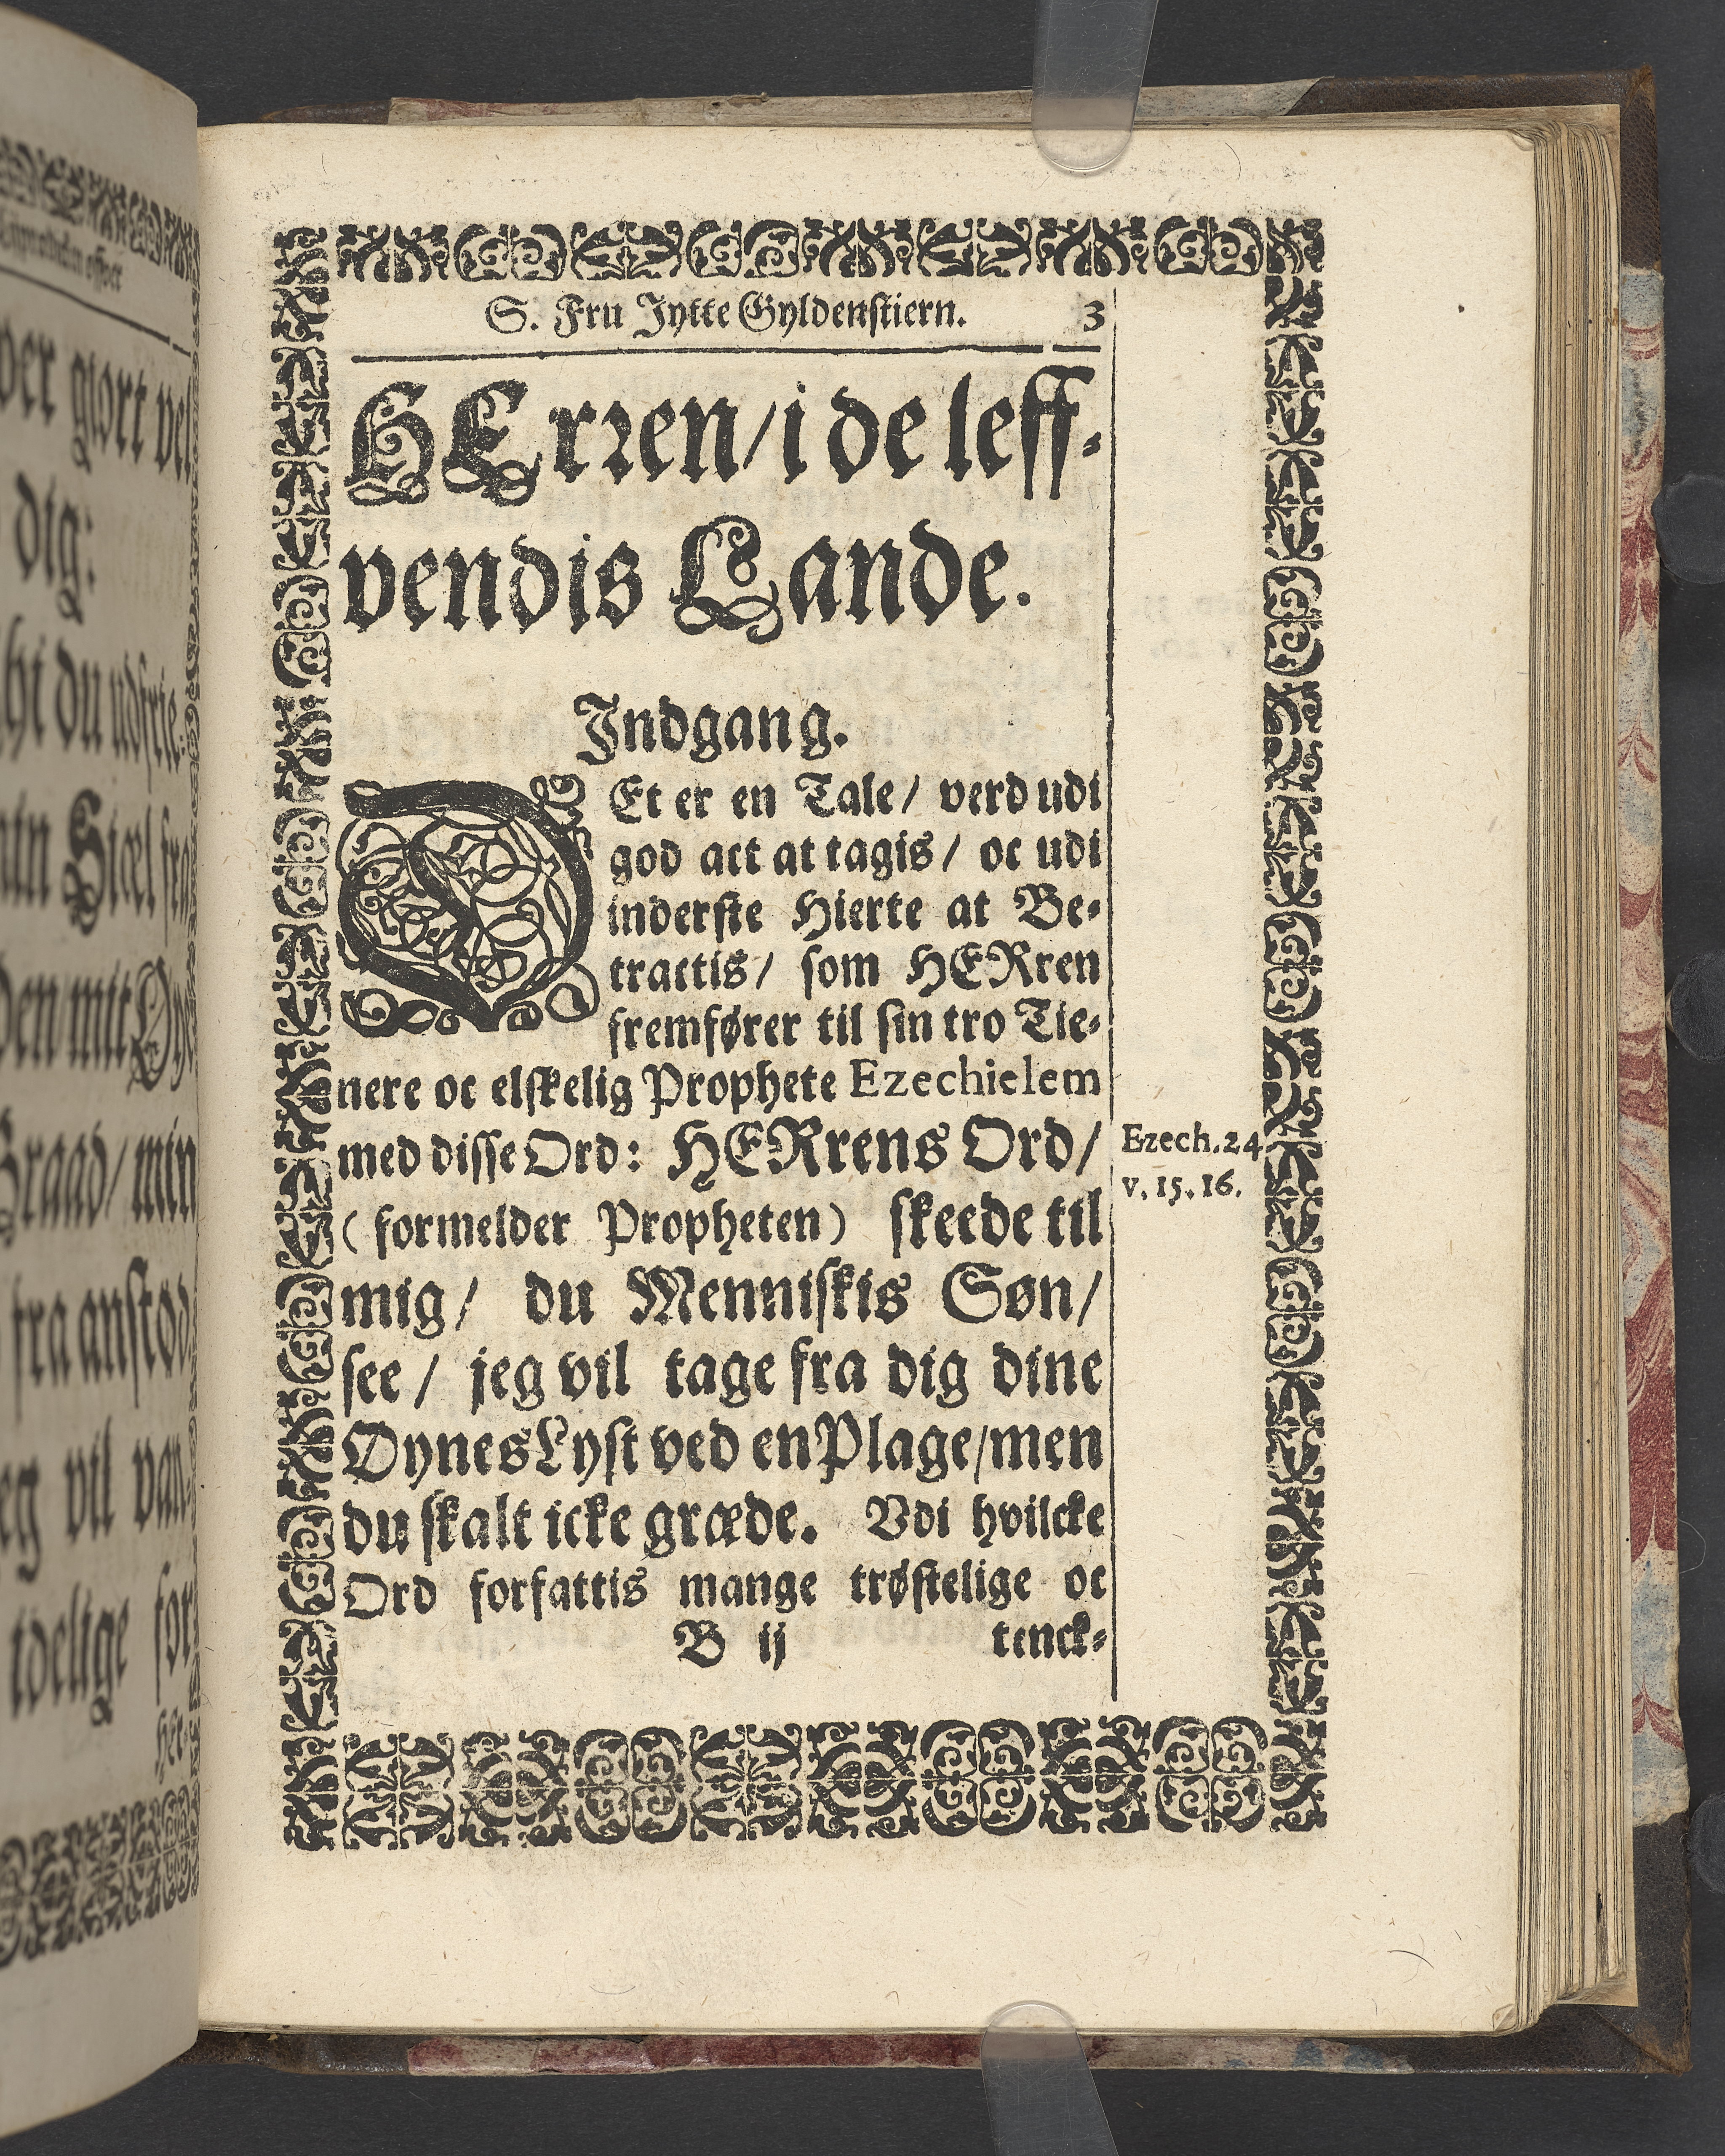 S. Fru Jytte Gyldenstiern. 3
HErren/ i de leff-
vendis Lande.
Indgang.
DEt er en Tale/ verd udi
god act at tagis/ oc udi
inderste Hierte at Be-
tractis/ som HERren
fremfører til sin tro Tie-
nere oc elskelig Prophete Ezechielem
med disse Ord: HERrens Ord/
(formelder Propheten) skeede til
mig/ du Menniskis Søn/
see/ jeg vil tage fra dig dine
Øynes Lyst ved en Plage/ men
du skalt icke græde. Vdi hvilcke
Ord forfattis mange trøstelige oc
B ij tenck-
Ezech. 24
v. 15. 16.
ver giort vel
dig:
thi du udfrie
min Siæl fra
Graad/ min
fra anstod
jeg vil van
idelige for
Her-